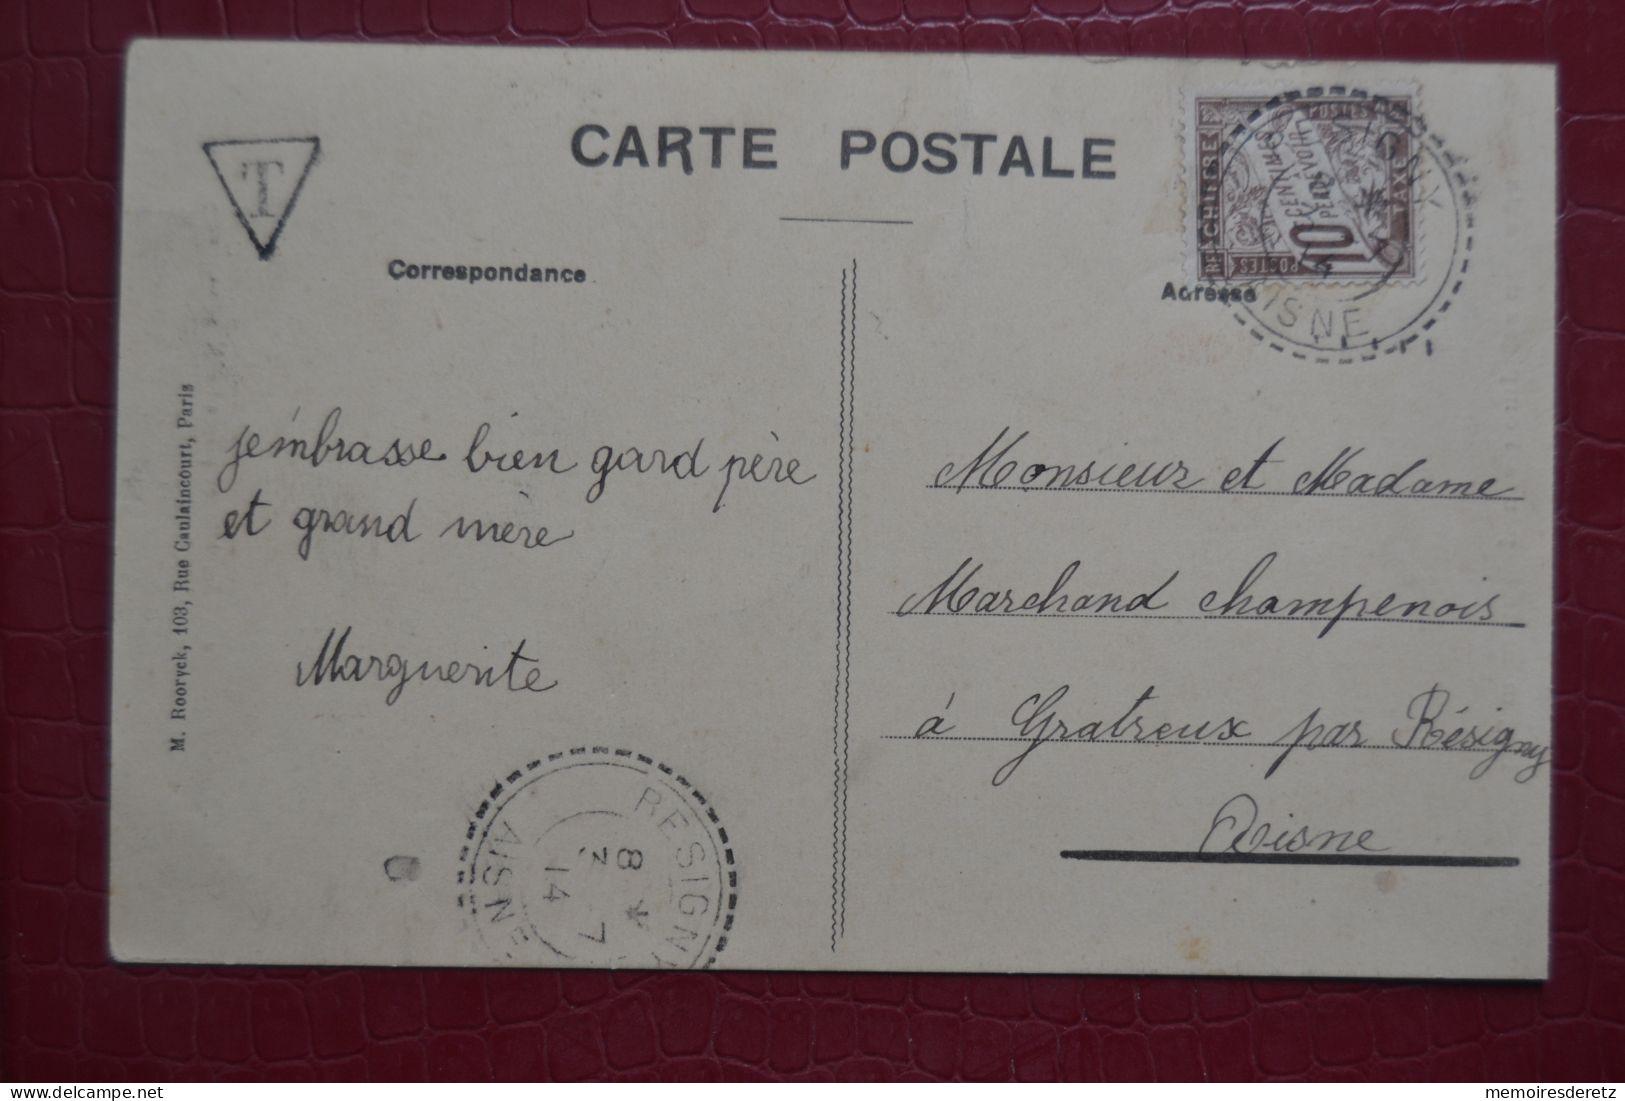 CARTE POSTALE
T
Correspondance
Adresse
CHIFFRE
TAXE
POSTES
10
CENTIMES
À PERCEVOIR
POSTES
AISNE
M. Rooryck, 103, Rue Caulaincourt, Paris
jembrasse bien gard père
et grand mère
Marguerite
Monsieur et Madame
Marchand champenois
à Gratreux par Résigny
Aisne
RESIGNY
8 * 7
14
AISNE
memoiresderetz